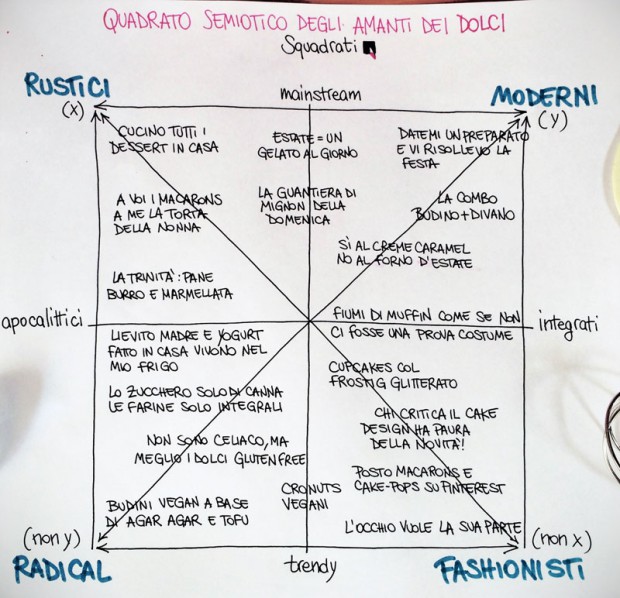 QUADRATO SEMIOTICO DEGLI AMANTI DEI DOLCI
Squadrati
RUSTICI
(x)
mainstream
MODERNI
(y)
CUCINO TUTTI I
DESSERT IN CASA
ESTATE = UN
GELATO AL GIORNO
DATEMI UN PREPARATO
E VI RISOLLEVO LA
FESTA
A VOI I MACARONS
A ME LA TORTA
DELLA NONNA
LA GUANTIERA DI
MIGNON DELLA
DOMENICA
LA COMBO
BUDINO + DIVANO
SÌ AL CREME CARAMEL
NO AL FORNO D'ESTATE
LA TRINITÀ: PANE
BURRO E MARMELLATA
apocalittici
FIUMI DI MUFFIN COME SE NON
CI FOSSE UNA PROVA COSTUME
integrati
LIEVITO MADRE E YOGURT
FATTO IN CASA VIVONO NEL
MIO FRIGO
LO ZUCCHERO SOLO DI CANNA
LE FARINE SOLO INTEGRALI
CUPCAKES COL
FROSTIG GLITTERATO
CHI CRITICA IL CAKE
DESIGN HA PAURA
DELLA NOVITA'!
NON SONO CELIACO, MA
MEGLIO I DOLCI GLUTENFREE
POSTO MACARONS E
CAKE-POPS SU PINTEREST
CRONUTS
VEGANI
BUDINI VEGAN A BASE
DI AGAR AGAR E TOFU
L'OCCHIO VUOLE LA SUA PARTE
(non y)
RADICAL
trendy
(non x)
FASHIONISTI